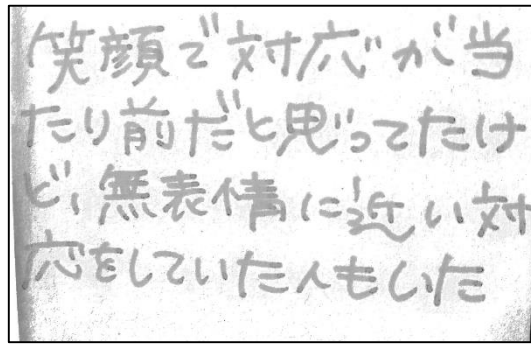 笑顔で対応が当
たり前だと思ってたけ
ど、無表情に近い対
応をしていた人もいた